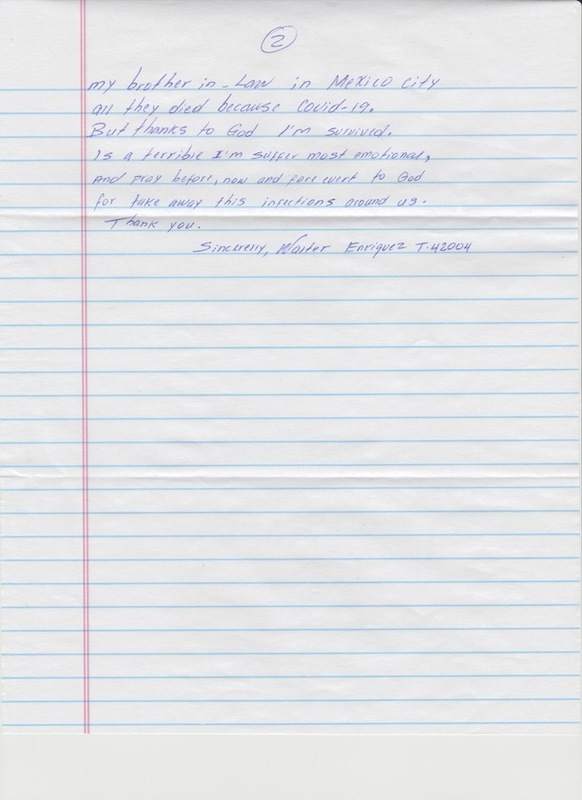 2
my brother in-Law in Mexico City
all they died because Covid-19.
But thanks to God I'm survived.
Is a terrible I'm suffer most emotional,
And pray before, now and fore wert to God
for take away this infections around us.
Thank you.
Sincerely, Walter Enriquez T-42004